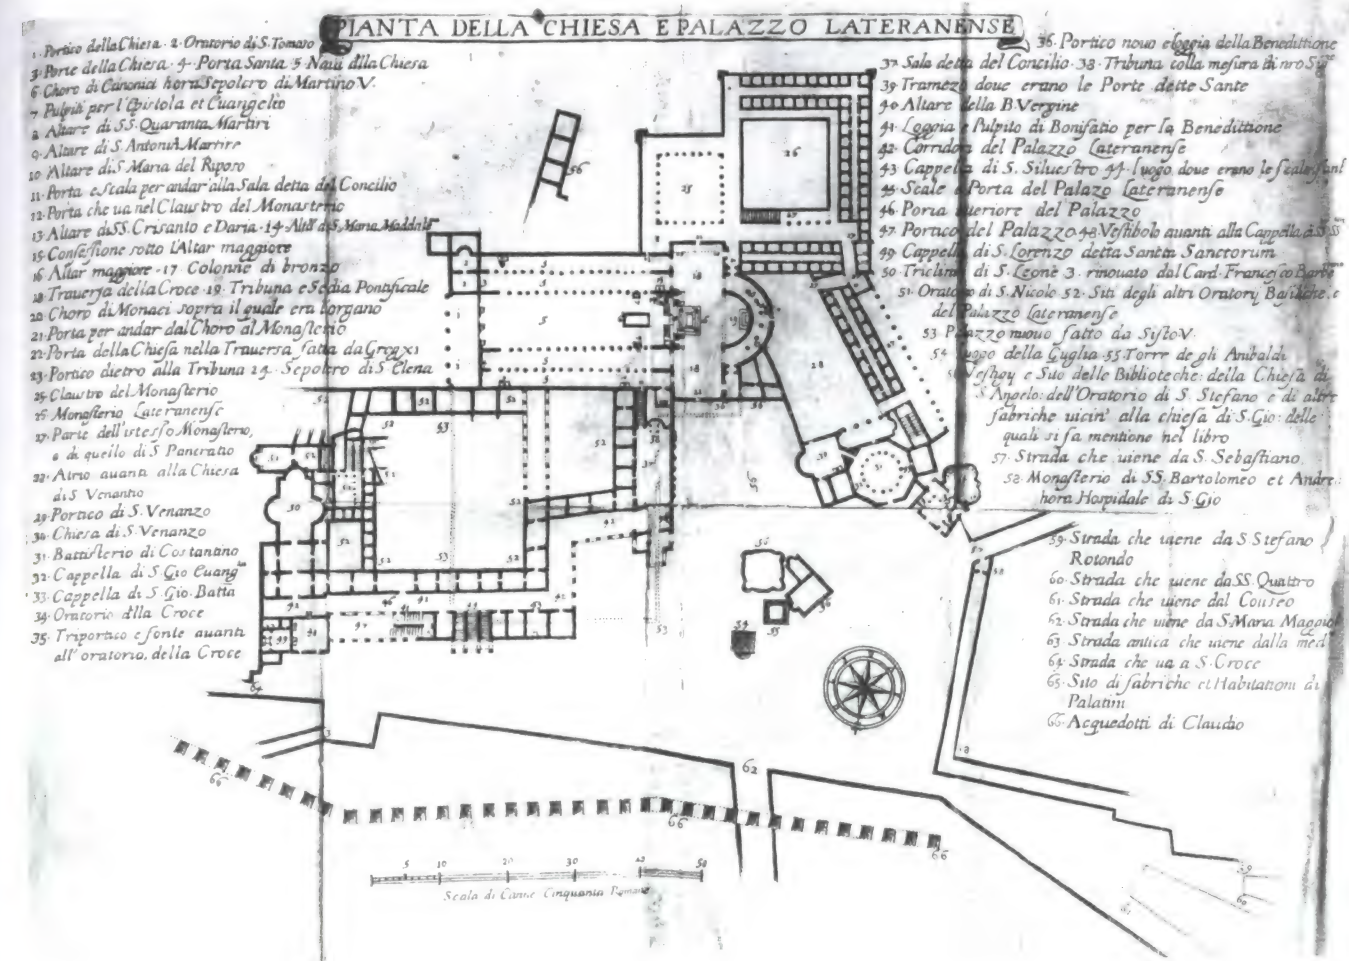 PIANTA DELLA CHIESA E PALAZZO LATERANENSE
1. Portico della Chiesa. 2. Oratorio di S. Tomaso
3. Porte della Chiesa. 4. Porta Santa. 5. Naui dlla Chiesa
6. Choro di Canonici hora Sepolcro di Martino V.
7. Pulpiti per l'Epistola et Euangelio
8. Altare di SS. Quaranta Martiri
9. Altare di S. Antonio Martire
10. Altare di S. Maria del Riposo
11. Porta e Scala per andar alla Sala detta del Concilio
12. Porta che ua nel Claustro del Monasterio
13. Altare di SS. Crisanto e Daria. 14. Altē di S. Maria Maddale
15. Confessione sotto l'Altar maggiore
16. Altar maggiore. 17 Colonne di bronzo
18. Trauersa della Croce. 19. Tribuna e Sedia Pontificale
20. Choro di Monaci sopra il quale era l'organo
21. Porta per andar dal Choro al Monasterio
22. Porta della Chiesa nella Trauersa fatta da Greg XI
23. Portico dietro alla Tribuna 24. Sepolcro di S. Elena
25. Claustro del Monasterio
26. Monasterio Lateranense
27. Parte dell'istesso Monasterio,
e di quello di S. Pancratio
28. Atrio auanti alla Chiesa
di S. Venantio
29. Portico di S. Venanzo
30. Chiesa di S. Venanzo
31. Battisterio di Costantino
32. Cappella di S. Gio Euangta
33. Cappella di S. Gio. Batta
34. Oratorio dlla Croce
35. Triportico e fonte auanti
all'oratorio, della Croce
36. Portico nouo e loggia della Benedittione
37. Sala detta del Concilio. 38. Tribuna colla mesura di nro Sigre
39. Tramezo doue erano le Porte dette Sante
40. Altare della B. Vergine
41. Loggia e Pulpito di Bonifatio per la Benedittione
42. Corridori del Palazzo Lateranense
43. Cappella di S. Siluestro 44. luogo doue erano le scale sant
45. Scale e Porta del Palazo Lateranense
46. Porta interiore del Palazzo
47. Portico del Palazzo. 48. Vestibolo auanti alla Cappella di SS
49. Cappella di S. Lorenzo detta Sancta Sanctorum
50. Triclinio di S. Leone 3. rinouato dal Card. Francesco Barbno
51. Oratorio di S. Nicolo 52. Siti degli altri Oratorij Basiliche, e
del Palazzo Lateranense
53 Palazzo nuouo fatto da Sisto V.
54. Luogo della Guglia 55 Torre de gli Anibaldi
56. Vestigij e Sito delle Biblioteche: della Chiesa di
S Angelo: dell'Oratorio di S. Stefano e di altre
fabriche uicin' alla chiesa di S. Gio: delle
quali si fa mentione nel libro
57. Strada che uiene da S. Sebastiano
58. Monasterio di SS. Bartolomeo et Andre:
hora Hospidale di S Gio
59. Strada che uiene da S Stefano
Rotondo
60. Strada che uiene da SS. Quattro
61. Strada che uiene dal Coliseo
62. Strada che uiene da S. Maria Maggio
63 Strada antica che uiene dalla med
64. Strada che ua a S. Croce
65. Sito di fabriche et Habitationi di
Palatini
66. Acquedotti di Claudio
62
66 66 66
5 10 20 30 40 50
Scala di Canne Cinquanta Romane